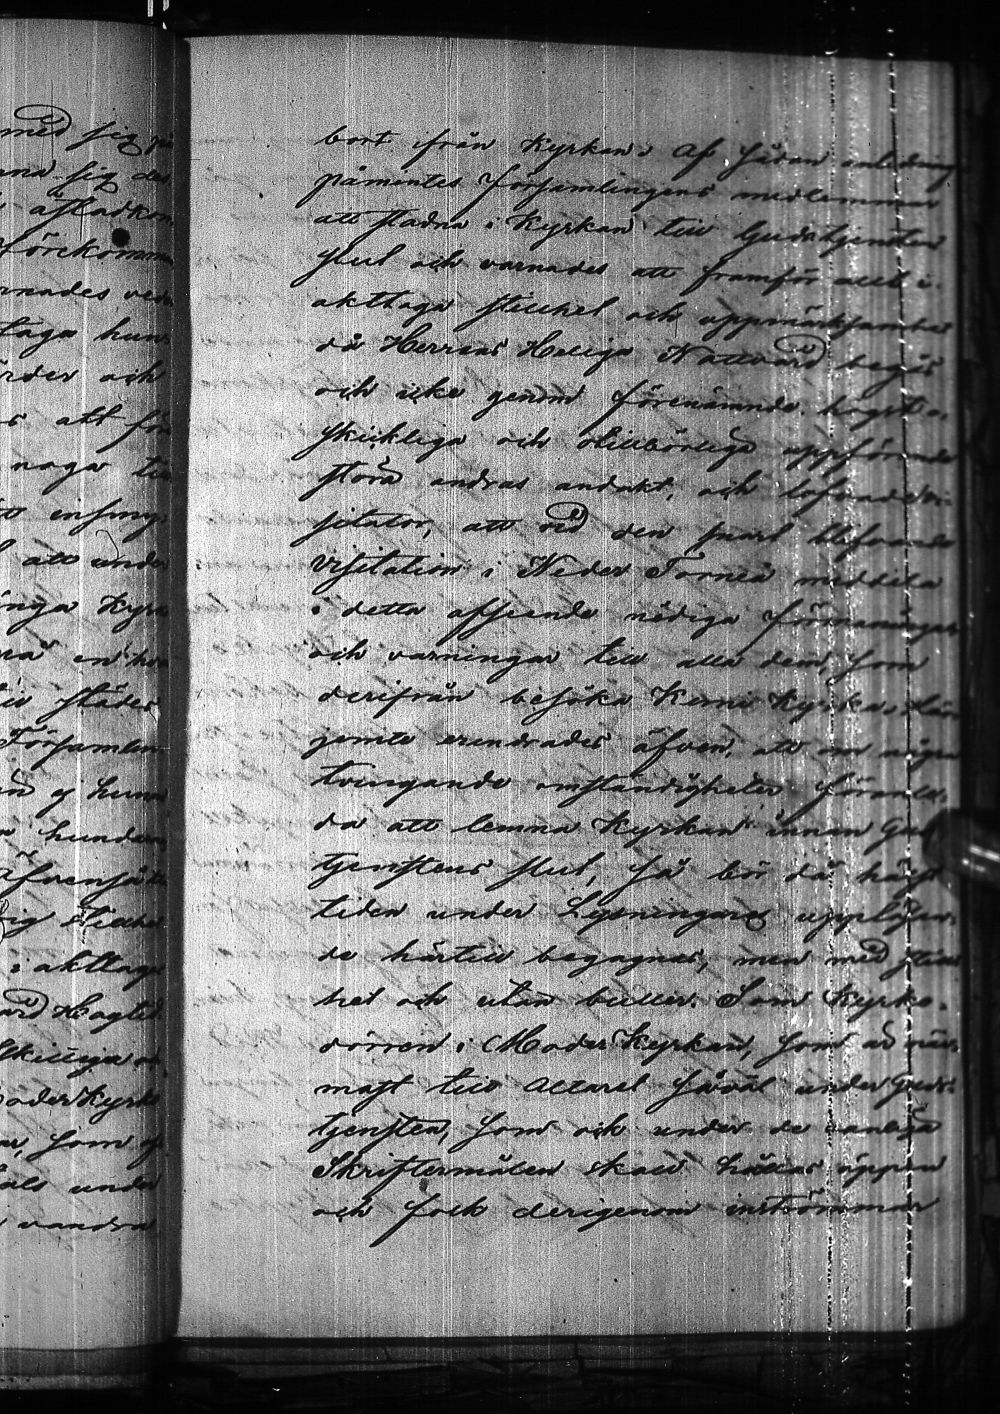 med sig
sig des
åstadkom
förekomma
rnades
taga hun
och
s att för
noga
enfin
att unde
nga Kyrk
en
städes
Församlin
ej hunn
hunden
äfvensåt
sig
iakttaga
ård
skilliga
oder Kyrk
som
under
vandra
bort ifrån Kyrkan. Af sådan anledning
påmintes Församlingens medlemmar
att stadna i Kyrkan till Gudstjensten
slut och varnades att framför allt i
akttaga stillhet och uppmärksamhet
då Herrans Heliga Nattvard begås
och icke genom förenämnde högst o
skickliga och otillbörliga uppförande
störa andras andakt, och lofvade
sitator, att vid den snart blifvande
visitation i Neder Torneå meddela
i detta afseende nödiga förmaningar
och varningar till alla dem, som
derifrån besöka Kemi Kyrka,
jemte erindrades äfven, att om någre
tvingande omständigheter föranle
da att lemna Kyrkan innan Gud
tjenstens slut, så bör då
tiden under Lysningarnes uppläsan
de härtill begagnas, men med still
het och utan buller. Som Kyrko
dörren i Moder Kyrkan, som är när
mast till Altaret såväl under Guds
tjensten, som och under de vanliga
Skriftermålen skall hållas öppen
och folk derigenom inströmmar